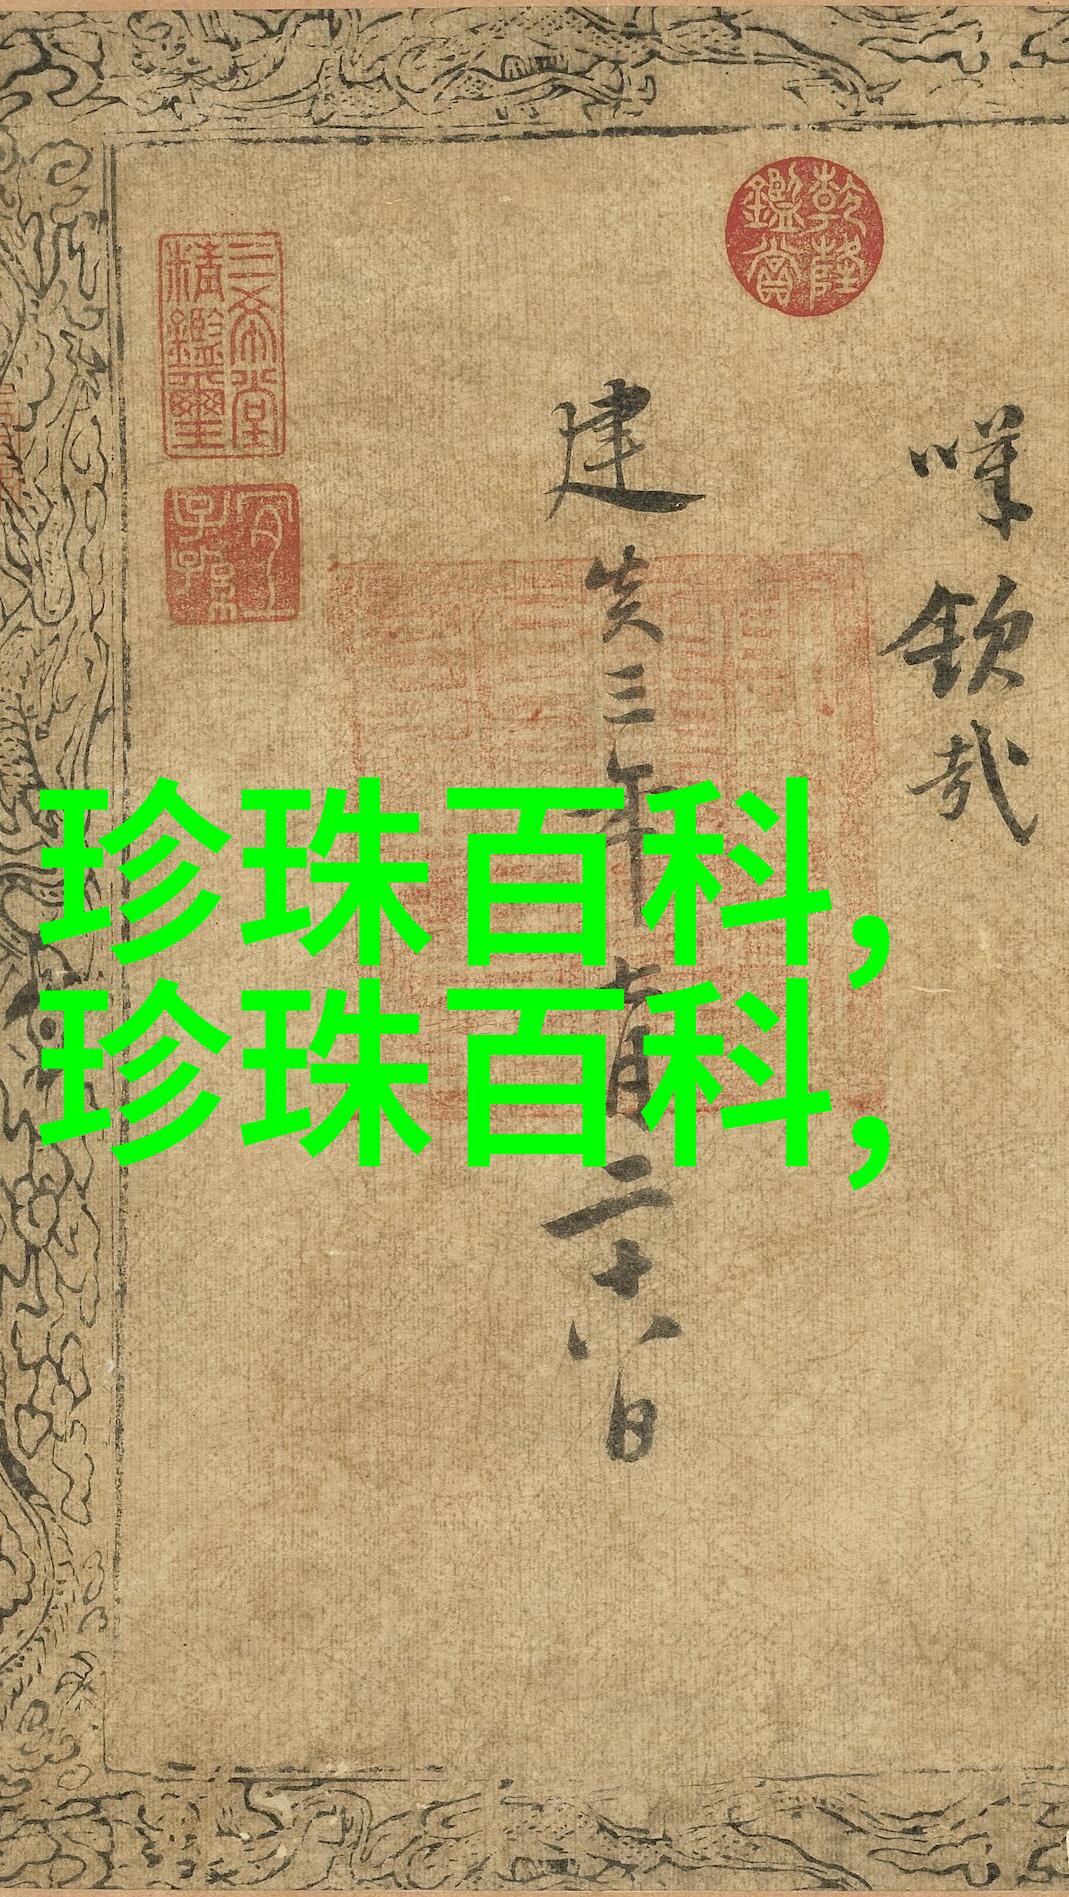 欽哉
乾隆鑑賞
建炎三年
月二十八日
三希堂精鑑璽
宜子孫
珍珠百科,
珍珠百科,